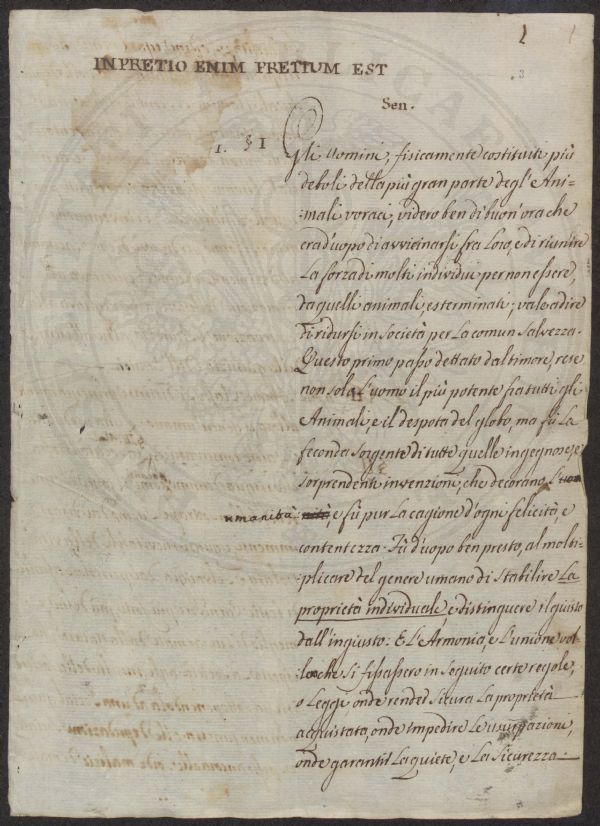 1
3
IN PRETIO ENIM PRETIUM EST
Sen.
1. §1
Gli Uomini, fisicamente costituiti più
deboli della più gran parte degl'Ani-
-mali voraci, videro ben di buon'ora che
era d'uopo di avvicinarsi fra Loro, e di riunire
La forza di molti individui per non essere,
da quelli animali, esterminati; vale a dire
di ridursi in Società per La comun Salvezza.
Questo primo passo dettato dal timore, rese
non solo L'uomo il più potente fra tutti gli
Animali, e il despota del globo, ma fù La
feconda Sorgente di tutte quelle ingegnose, e
Sorprendenti invenzioni, che decorano
umanità, e fù pur La cagione d'ogni felicità, e
contentezza. Fù d'uopo ben presto, al molti-
-plicare del genere umano di Stabilire La
proprietà individuale, e distinguere il giusto
dall'ingiusto: E L'Armonia, e L'unione vol-
-lero che Si fissassero in Seguito certe regole,
o Leggi, onde render Sicura La proprietà
acquistata, onde Impedire Le usurpazione,
onde garantir La quiete, e La Sicurezza.